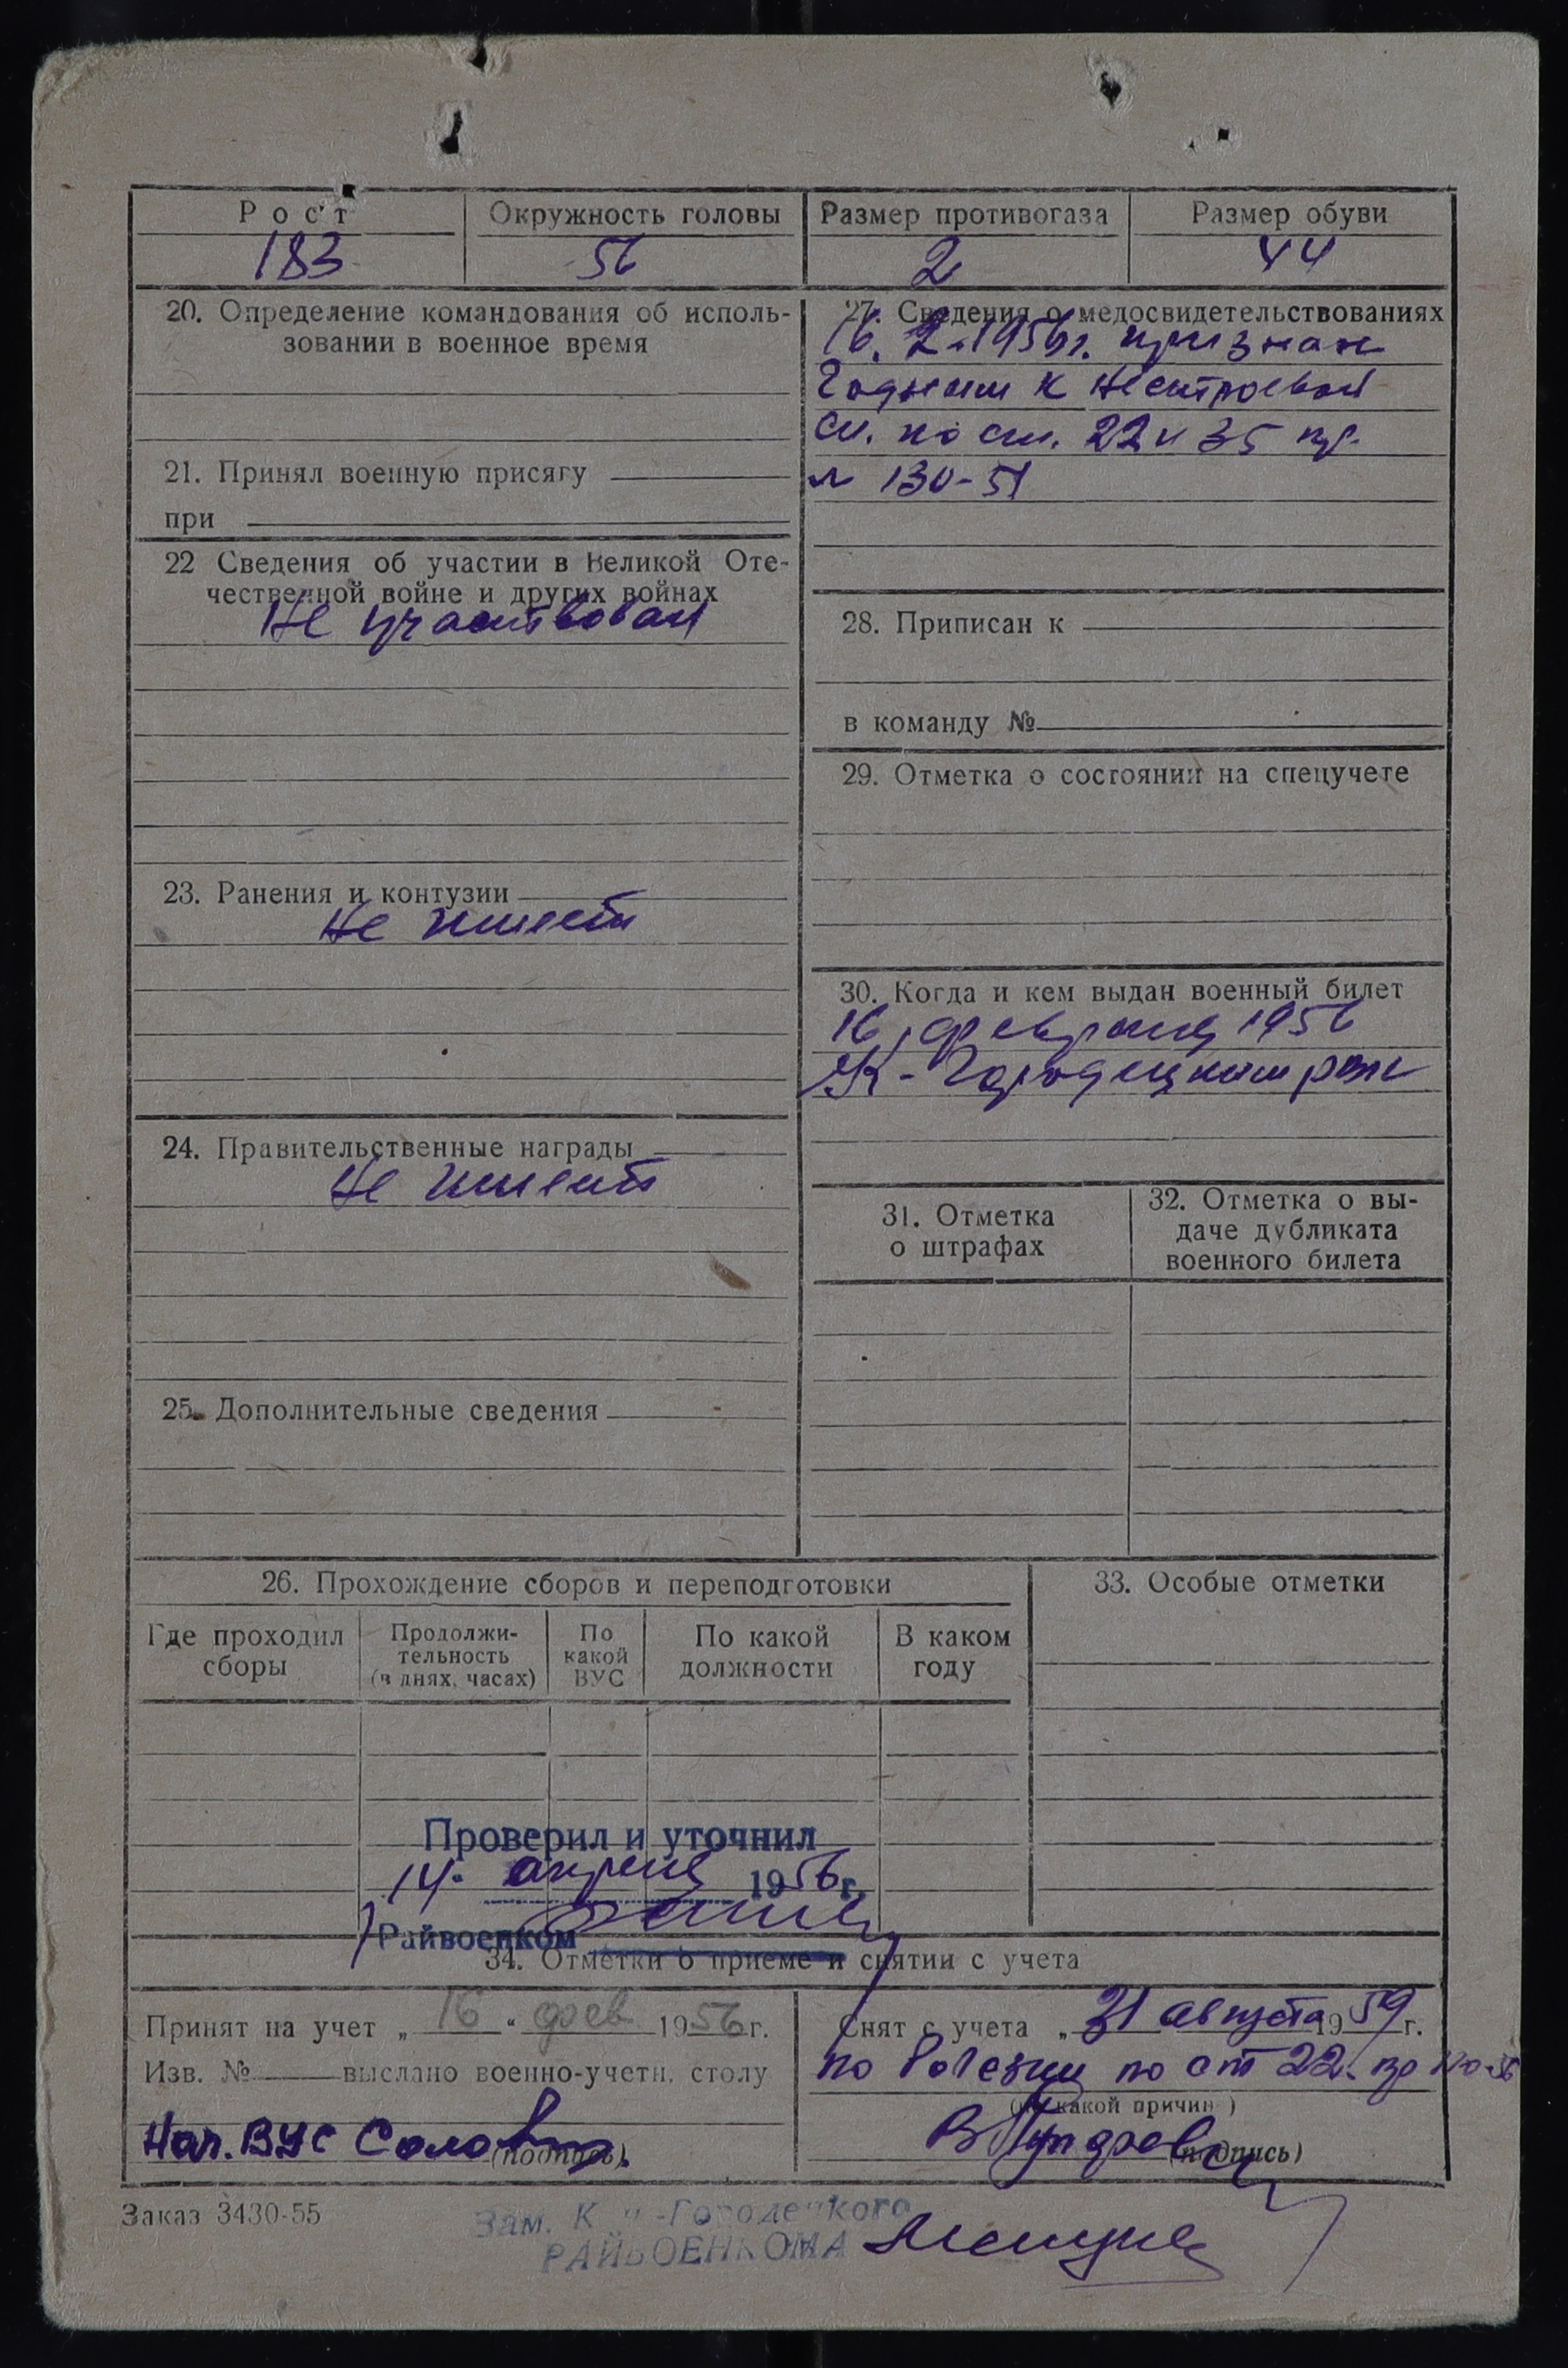 Рост Окружность головы Размер противогаза Размер обуви
183 56 2 44
20. Определение командования об исполь-
зовании в военное время
21. Принял военную присягу
при
22 Сведения об участии в Великой Оте-
чественной войне и других войнах
Не участвовал
23. Ранения и контузии
Не имеет
24. Правительственные награды
Не имеет
25. Дополнительные сведения
27. Сведения о медосвидетельствованиях
16. 2. 1956г. признан
годным к нестроевой
сл. по ст. 22 и 35 пр.
130-51
28. Приписан к
в команду №
29. Отметка о состоянии на спецучете
30. Когда и кем выдан военный билет
16 февраля 1956
К-Городецким рвк
31. Отметка
о штрафах
32. Отметка о вы-
даче дубликата
военного билета
26. Прохождение сборов и переподготовки
Где проходил
сборы
Продолжи-
тельность
(в днях, часах)
По
какой
ВУС
По какой
должности
В каком
году
33. Особые отметки
Проверил и уточнил
14. апреля 1956г.
Райвоенком
34. Отметки о приеме и снятии с учета
Принят на учет „16“ фев 1956г.
Изв. № выслано военно-учетн. столу
Нач. ВУС
(подпись)
Снят с учета „31 августа 1959г.
по болезни по ст 22. пр
(по какой причине)
(подпись)
Заказ 3430-55
Зам. К -Городецкого
РАЙВОЕНКОМА